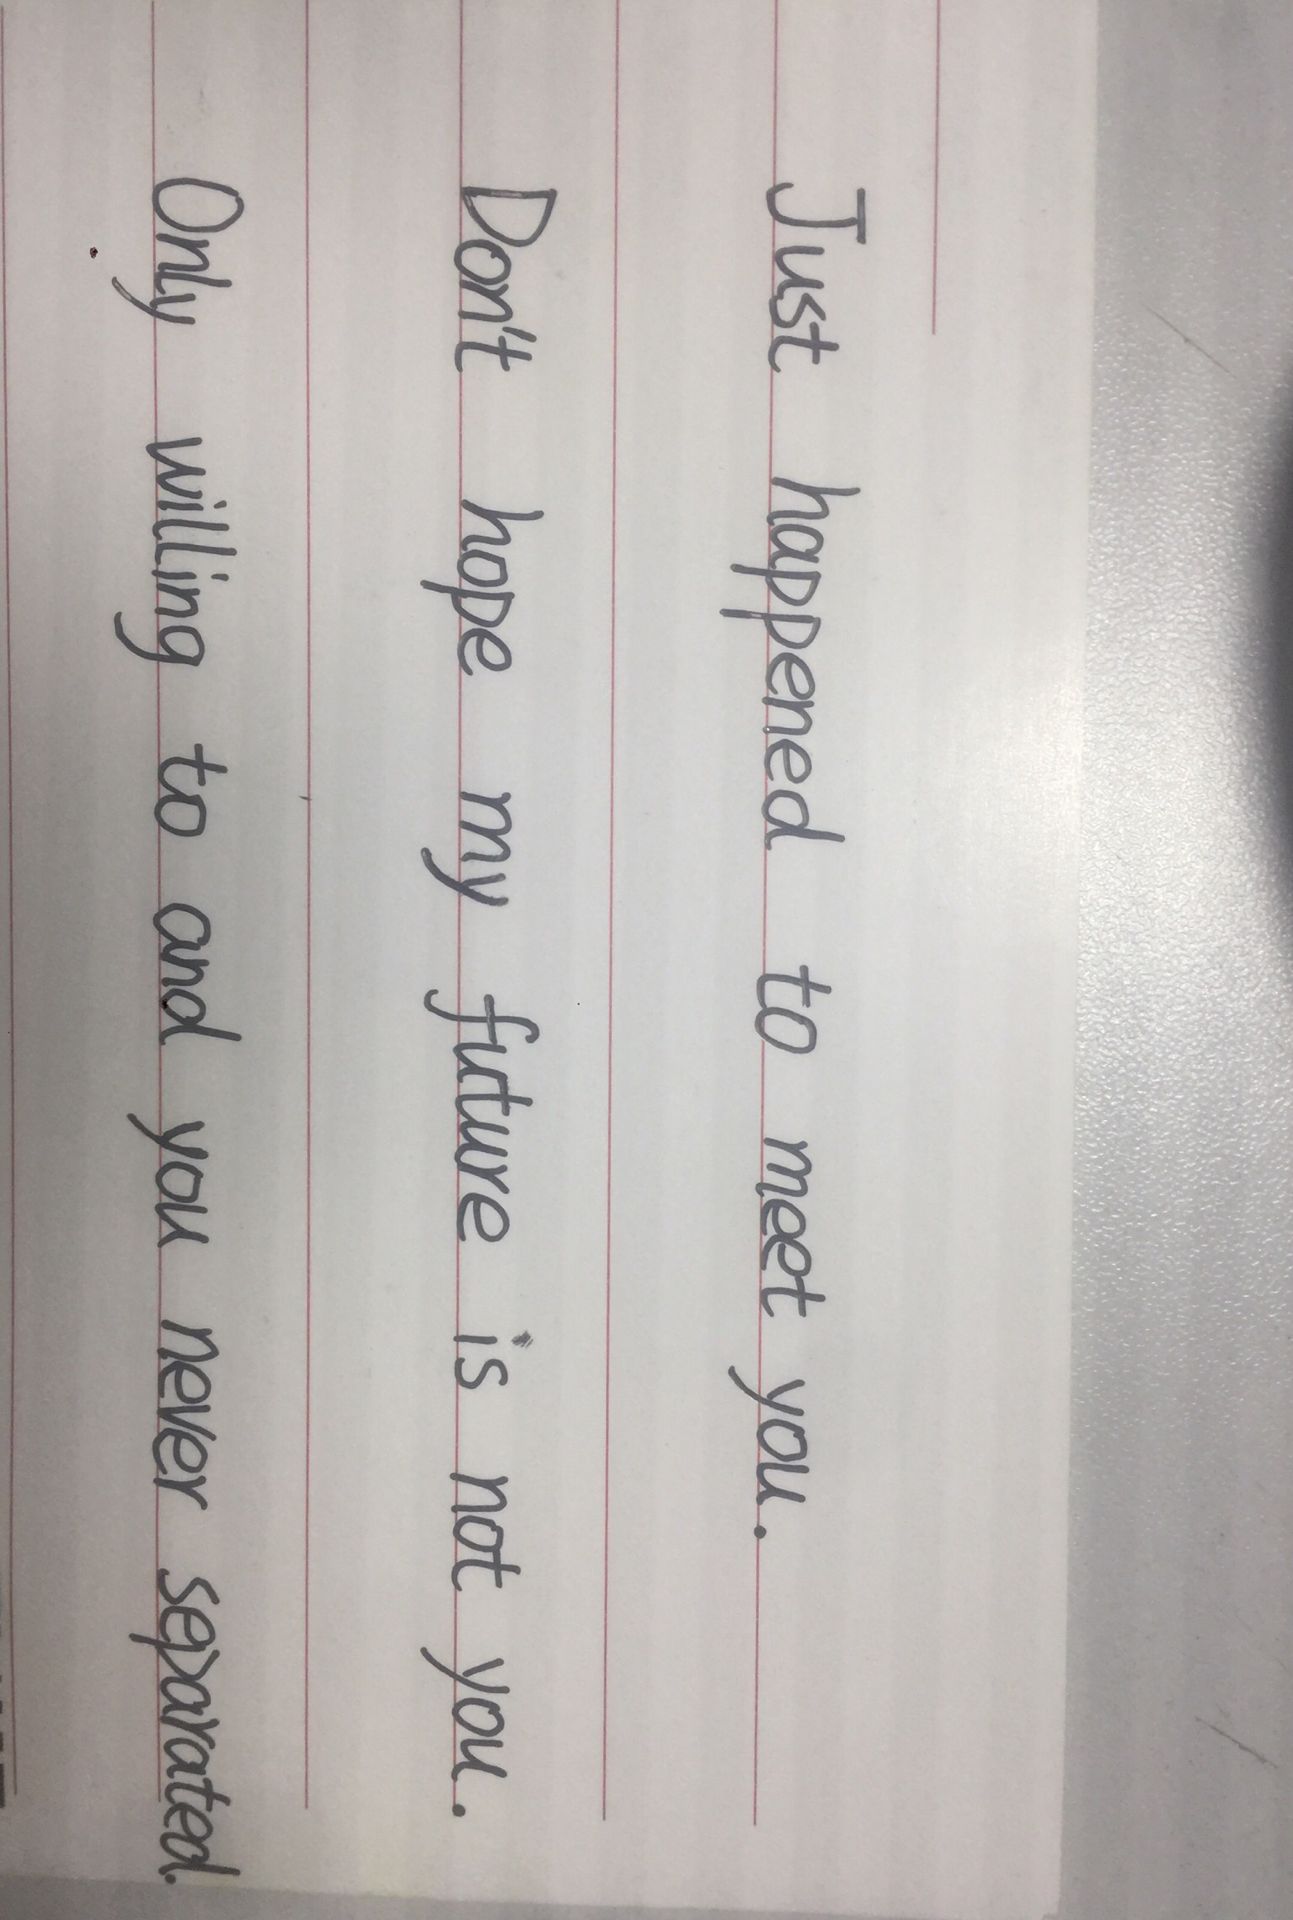 Just happened to meet you.
Don't hope my future is not you.
Only willing to and you never separated.